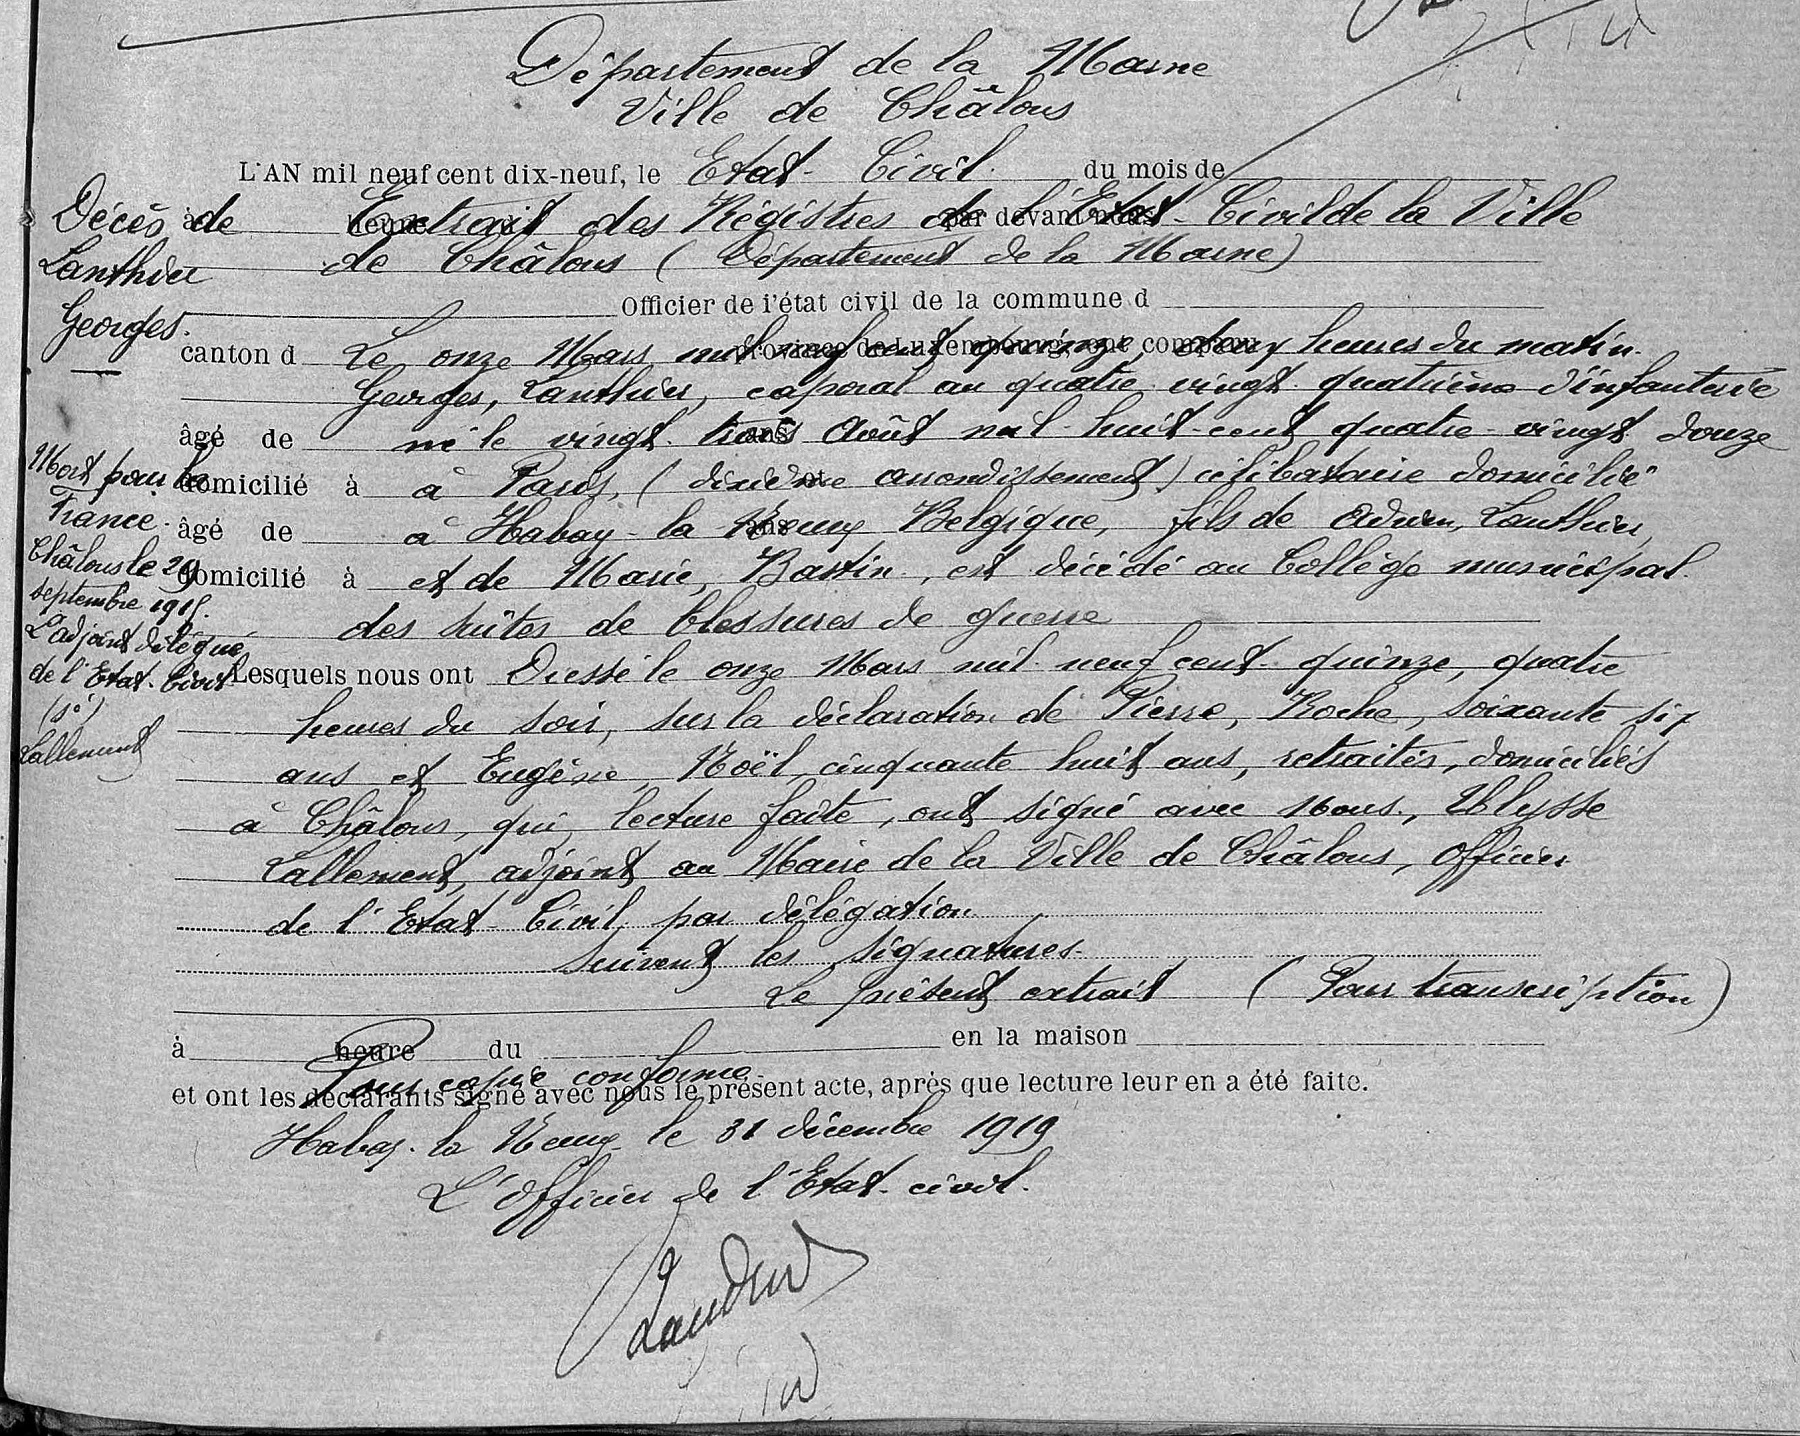 Département de la Marne
Ville de Châlons
L'AN mil neuf cent dix-neuf, le Etat-Civil. du mois de
à heure par devant nous
Extrait des Régistres de l'Etat-Civil de la Ville
de Châlons (Département de la Marne)
Officier de l'état civil de la commune d
canton d province de Luxembourg, ont comparu
Le onze Mars mil neuf cent quinze, heures du matin.
Georges, Lanthier, caporal au quatre-vingt-quatrième d'infanterie
âgé de ans
né le vingt-trois Août mil-huit-cent quatre-vingt douze
domicilié à et
à Paris, (dixième arrondissement) célibataire domicilié
âgé de ans
à Habay-la-Neuve, Belgique, fils de Adrien, Lanthier,
domicilié à et de Marie, Bastin, est décédé au Collège municipal.
des suîtes de blessures de guerre
Lesquels nous ont Dressé le onze Mars mil-neuf cent-quinze, quatre
heures du soir, sur la déclaration de Pierre, Roche, soixante six
ans et Eugène, Noël, cinquante huit ans, retraités, domiciliés
à Châlons, qui, lecture faîte, ont signé avec Nous, Ulysse
Lallement, adjoint au Maire de la Ville de Châlons, officier
de l'Etat-Civil, par délégation
Suivent les signatures.
Le présent extrait (Pour transcription)
à heure du en la maison
Pour copie conforme
et ont les déclarants signé avec nous le présent acte, après que lecture leur en a été faite.
Habay-la-Neuve le 31 décembre 1919
L'Officier de l'Etat-civil.
Décès de
Lanthier
Georges.
Mort pour la
France.
Châlons le 29
septembre 1915.
L'adjoint délégué
de l'Etat-Civil
(sé)
Lallement